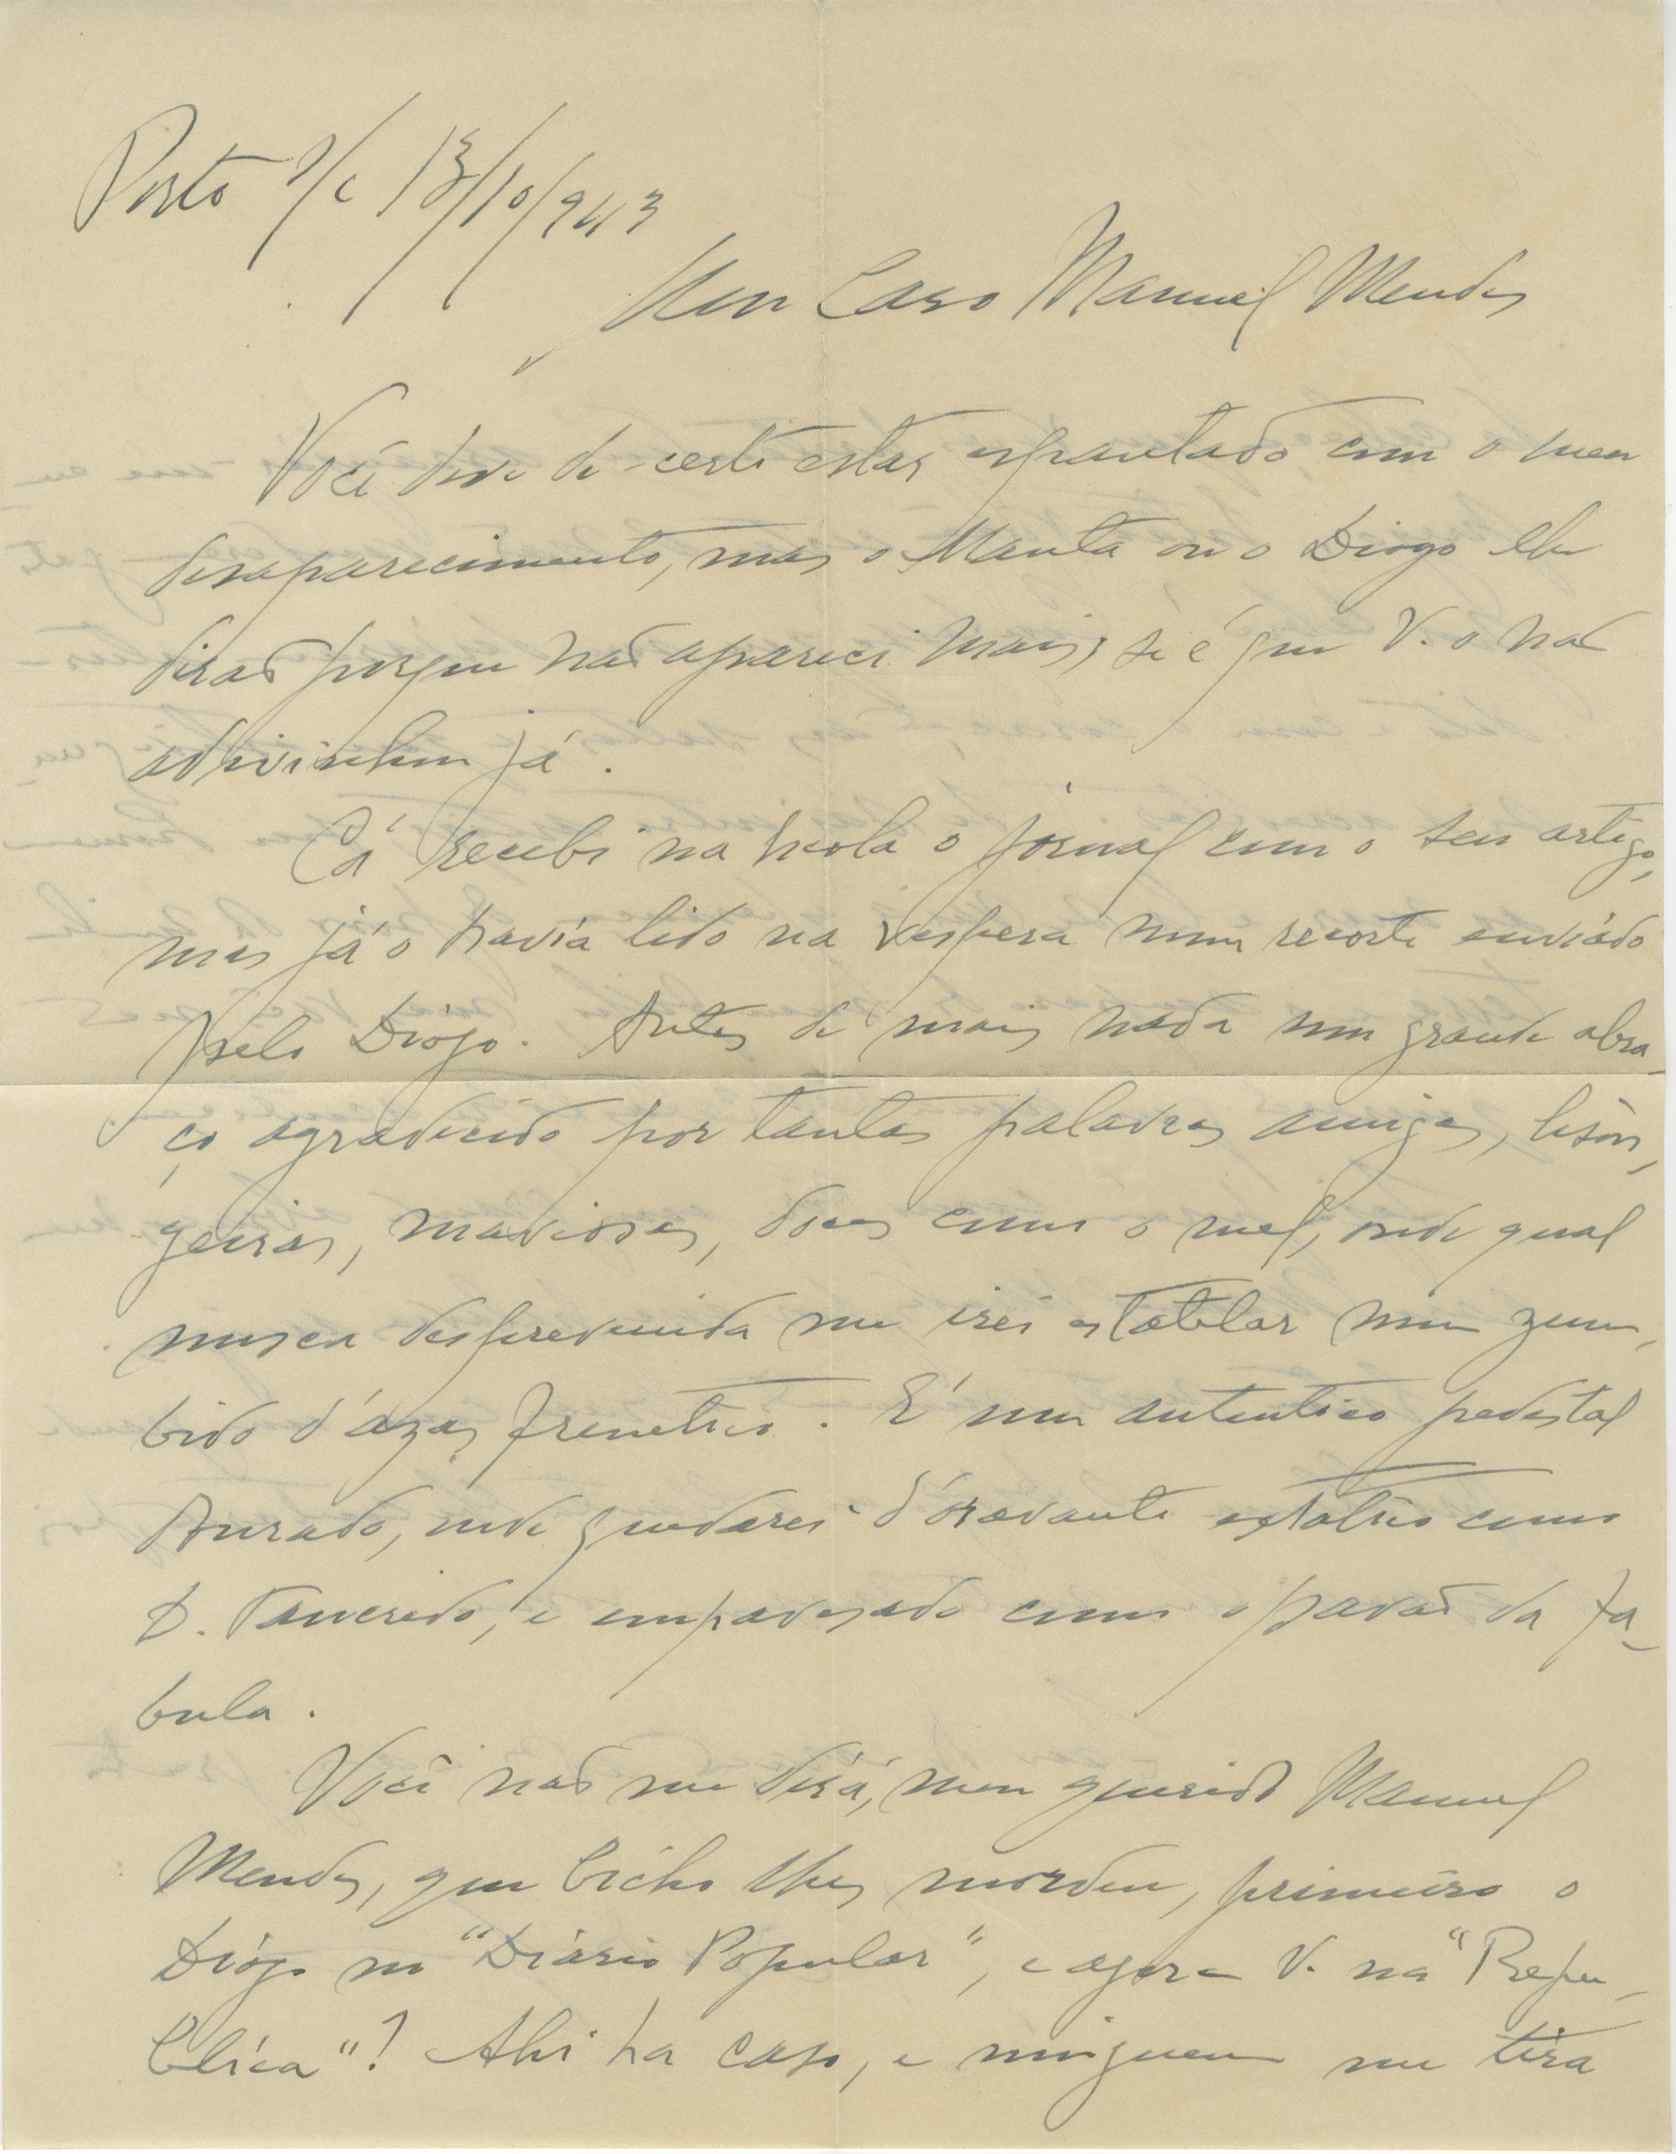 Porto s/c 13/10/943
Meu Caro Manuel Mendes
Você deve de certo estar espantado com o meu
desaparecimento, mas o Manta ou o Diogo lhe
dirão porque não apareci mais, se é que V. o não
adivinhou já.
Cá recebi na escola o jornal com o seu artigo,
mas já o havia lido na vespera num recorte enviádo
pelo Diógo. Antes de mais nada um grande abra-
ço agradecido por tantas palavras amigas, lison-
geiras, maviosas, doces como o mel, onde qual
mosca desprevenida me irei estatelar num zum-
bido d'ázas frenetico. É um autentico pedestal
dourado, onde quedarei d'óravante extático como
D. Tancredo, e empavesado como o pavão da fa-
bula.
Você não me dirá, meu querido Manuel
Mendes, que bicho lhes mordeu, primeiro o
Diógo no "Diário Popular", e agora V. na "Repu-
blica"? Ahi ha caso, e ninguem me tira